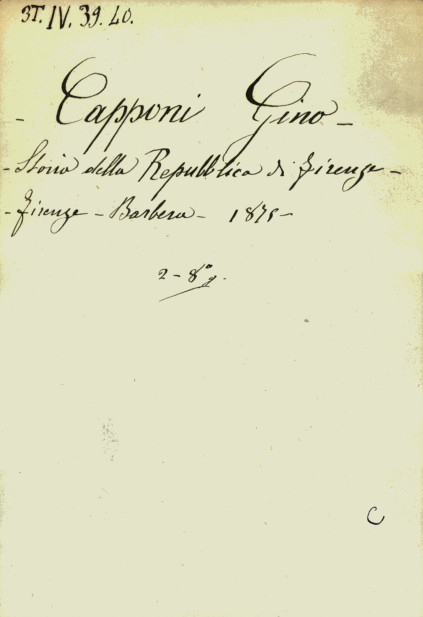 3T. IV. 39. 40.
- Capponi Gino -
- Storia della Repubblica di Firenze -
- Firenze - Barbera - 1875 -
2 - 8º g.
C